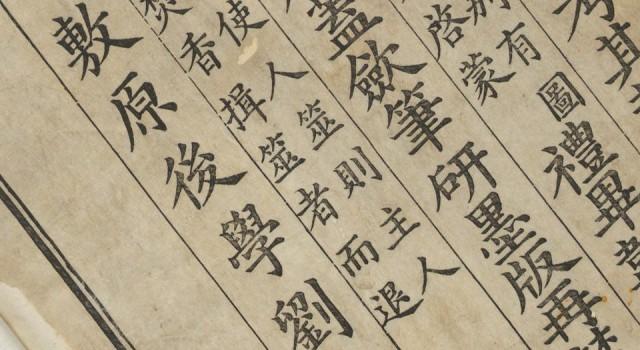 考其
有圖
啓蒙
禮畢
蓋歛筆研墨版再
使人筮則主人
焚香揖筮者而退
敷原後學劉